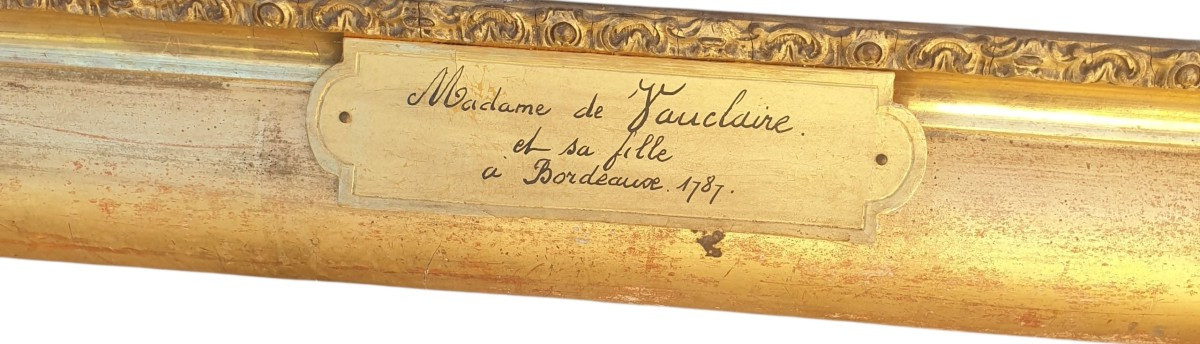 Madame de Vauclaire.
et sa fille
à Bordeaux. 1787.